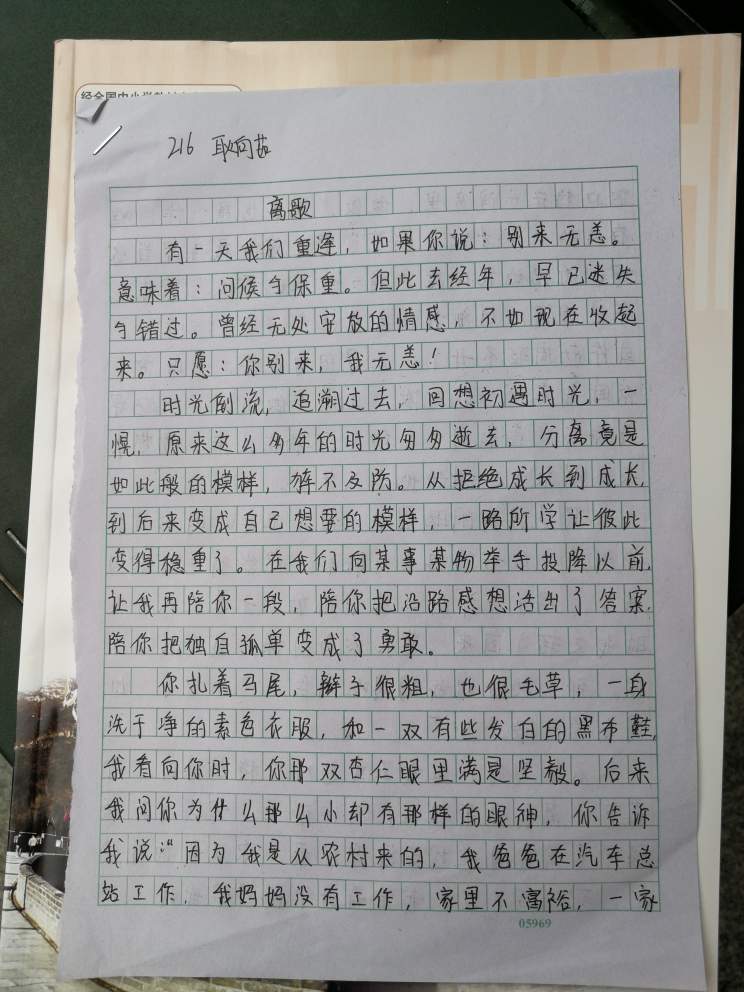 经全国中小学教材
216 耿向茹
离歌
有一天我们重逢，如果你说：别来无恙。
意味着：问候与保重。但此去经年，早已迷失
与错过。曾经无处安放的情感，不如现在收起
来。只愿：你别来，我无恙！
时光倒流，追溯过去，回想初遇时光，一
幌，原来这么多年的时光匆匆逝去，分离竟是
如此般的模样，猝不及防。从拒绝成长到成长，
到后来变成自己想要的模样，一路所学让彼此
变得稳重了。在我们向某事某物举手投降以前，
让我再陪你一段，陪你把沿路感想活出了答案，
陪你把独自孤单变成了勇敢。
你扎着马尾，辫子很粗，也很毛草，一身
洗干净的素色衣服，和一双有些发白的黑布鞋，
我看向你时，你那双杏仁眼里满是坚毅。后来
我问你为什么那么小却有那样的眼神，你告诉
我说：“因为我是从农村来的，我爸爸在汽车总
站工作，我妈妈没有工作，家里不富裕，一家
05969